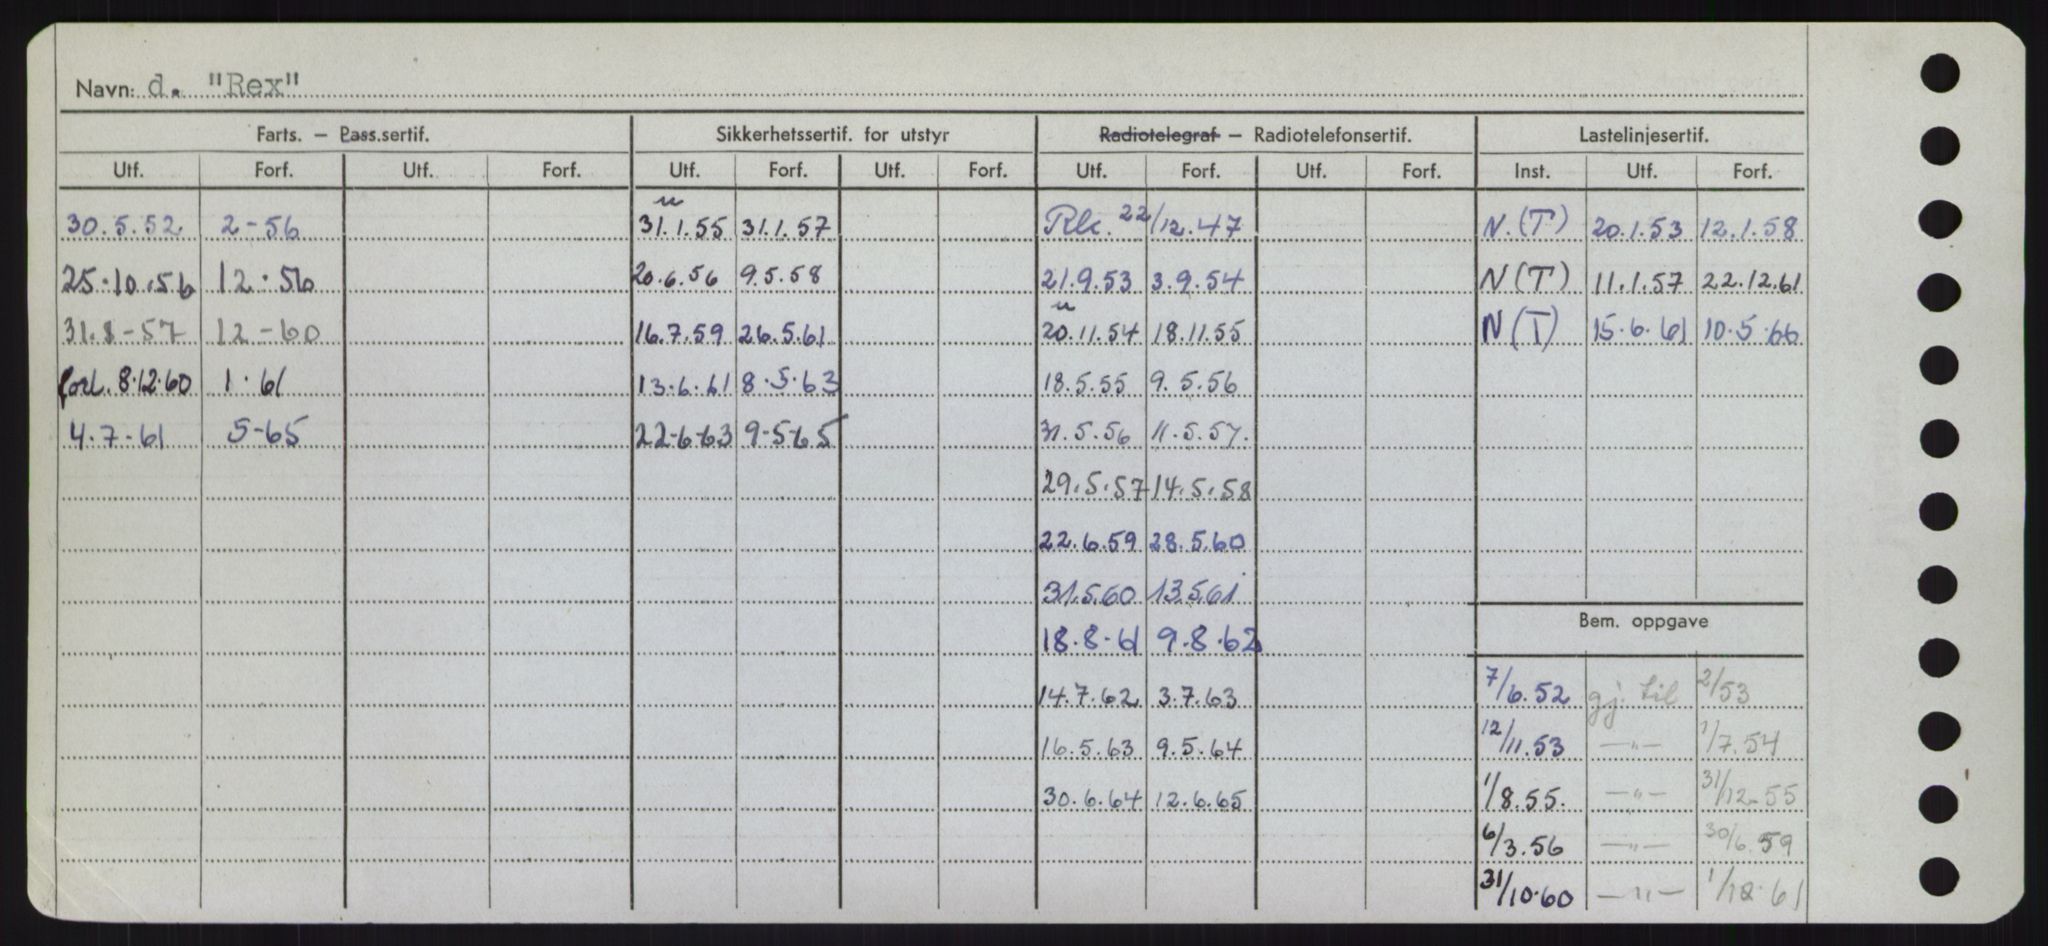 Navn: d. "Rex"
Farts. — Pass.sertif. Sikkerhetssertif. for utstyr Radiotelegraf — Radiotelefonsertif. Lastelinjesertif.
Utf. Forf. Utf. Forf. Utf. Forf. Utf. Forf. Utf. Forf. Utf. Forf. Inst. Utf. Forf.
30.5.52 2-56 31.1.55 31.1.57 22/12.47 N.(T) 20.1.53 12.1.58
25.10.56 12.56 20.6.56 9.5.58 21.9.53 3.9.54 N(T) 11.1.57 22.12.61
31.8-57 12-60 16.7.59 26.5.61 20.11.54 18.11.55 N(T) 15.6.61 10.5.66
forl. 8.12.60 1.61 13.6.61 8.5.63 18.5.55 9.5.56
4.7-61 5-65 22-6-63 9-5-65 31.5.56 11.5.57.
29.5.57 14.5.58
22.6.59 28.5.60
31.5.60 13.5.61
Bem. oppgave
18.8.61 9.8.62
14.7.62 3.7.63 7/6.52 gj. til 2/53
16.5.63 9.5.64 12/11.53 —"— 1/7.54
30.6.64 12.6.65 1/8.55. —"— 31/12-55
6/3.56 —"— 30/6.59
31/10.60 —"—